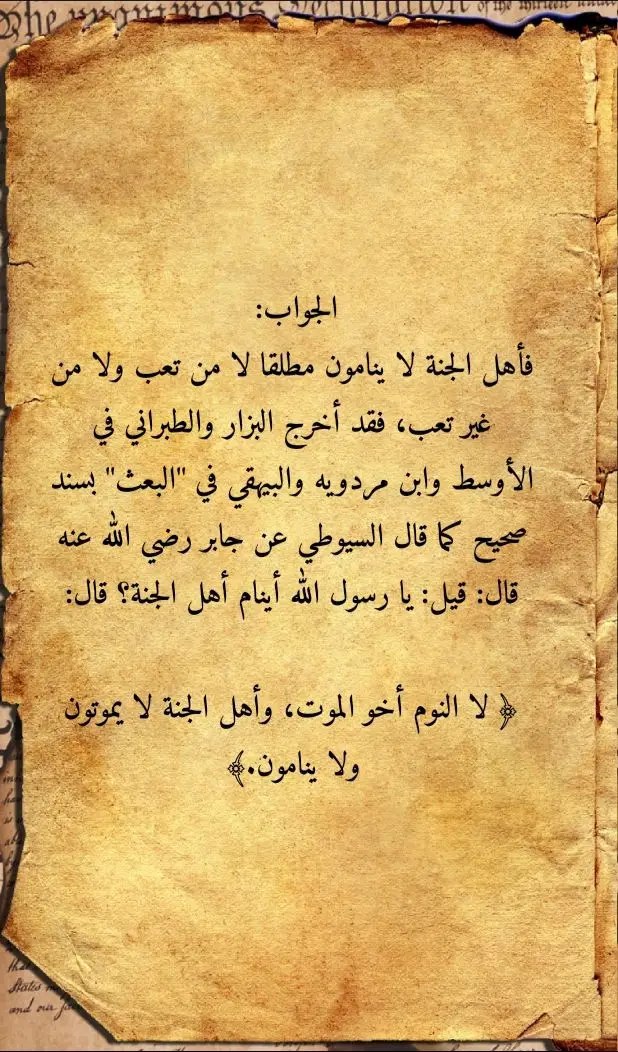 The unanimous Declaration of the thirteen united
الجواب:
فأهل الجنة لا ينامون مطلقا لا من تعب ولا من
غير تعب، فقد أخرج البزار والطبراني في
الأوسط وابن مردويه والبيهقي في "البعث" بسند
صحيح كما قال السيوطي عن جابر رضي الله عنه
قال: قيل: يا رسول الله أينام أهل الجنة؟ قال:
﴿ لا النوم أخو الموت، وأهل الجنة لا يموتون
ولا ينامون.﴾
States
and our